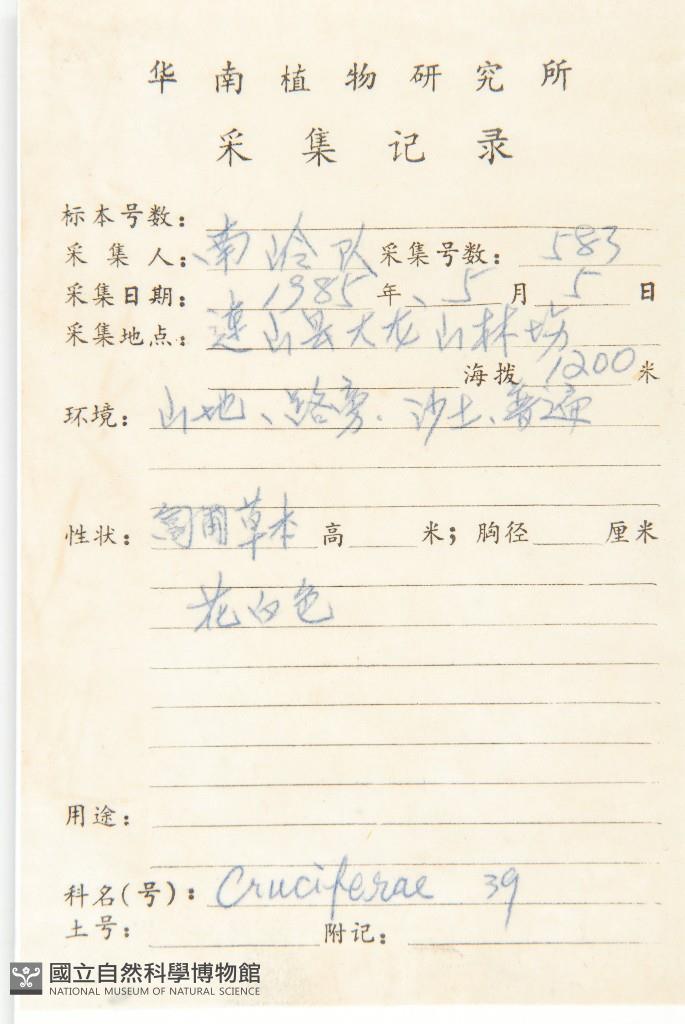 华南植物研究所
采集记录
标本号数:
采集人: 南岭队 采集号数: 583
采集日期: 1985年、5月5日
采集地点: 连山县大龙山林场
海拨 1200 米
环境: 山地、路旁、沙土、普遍
性状: 草本 高 米; 胸径 厘米
花白色
用途:
科名(号): Cruciferae 39
土号: 附记:
國立自然科學博物館
NATIONAL MUSEUM OF NATURAL SCIENCE